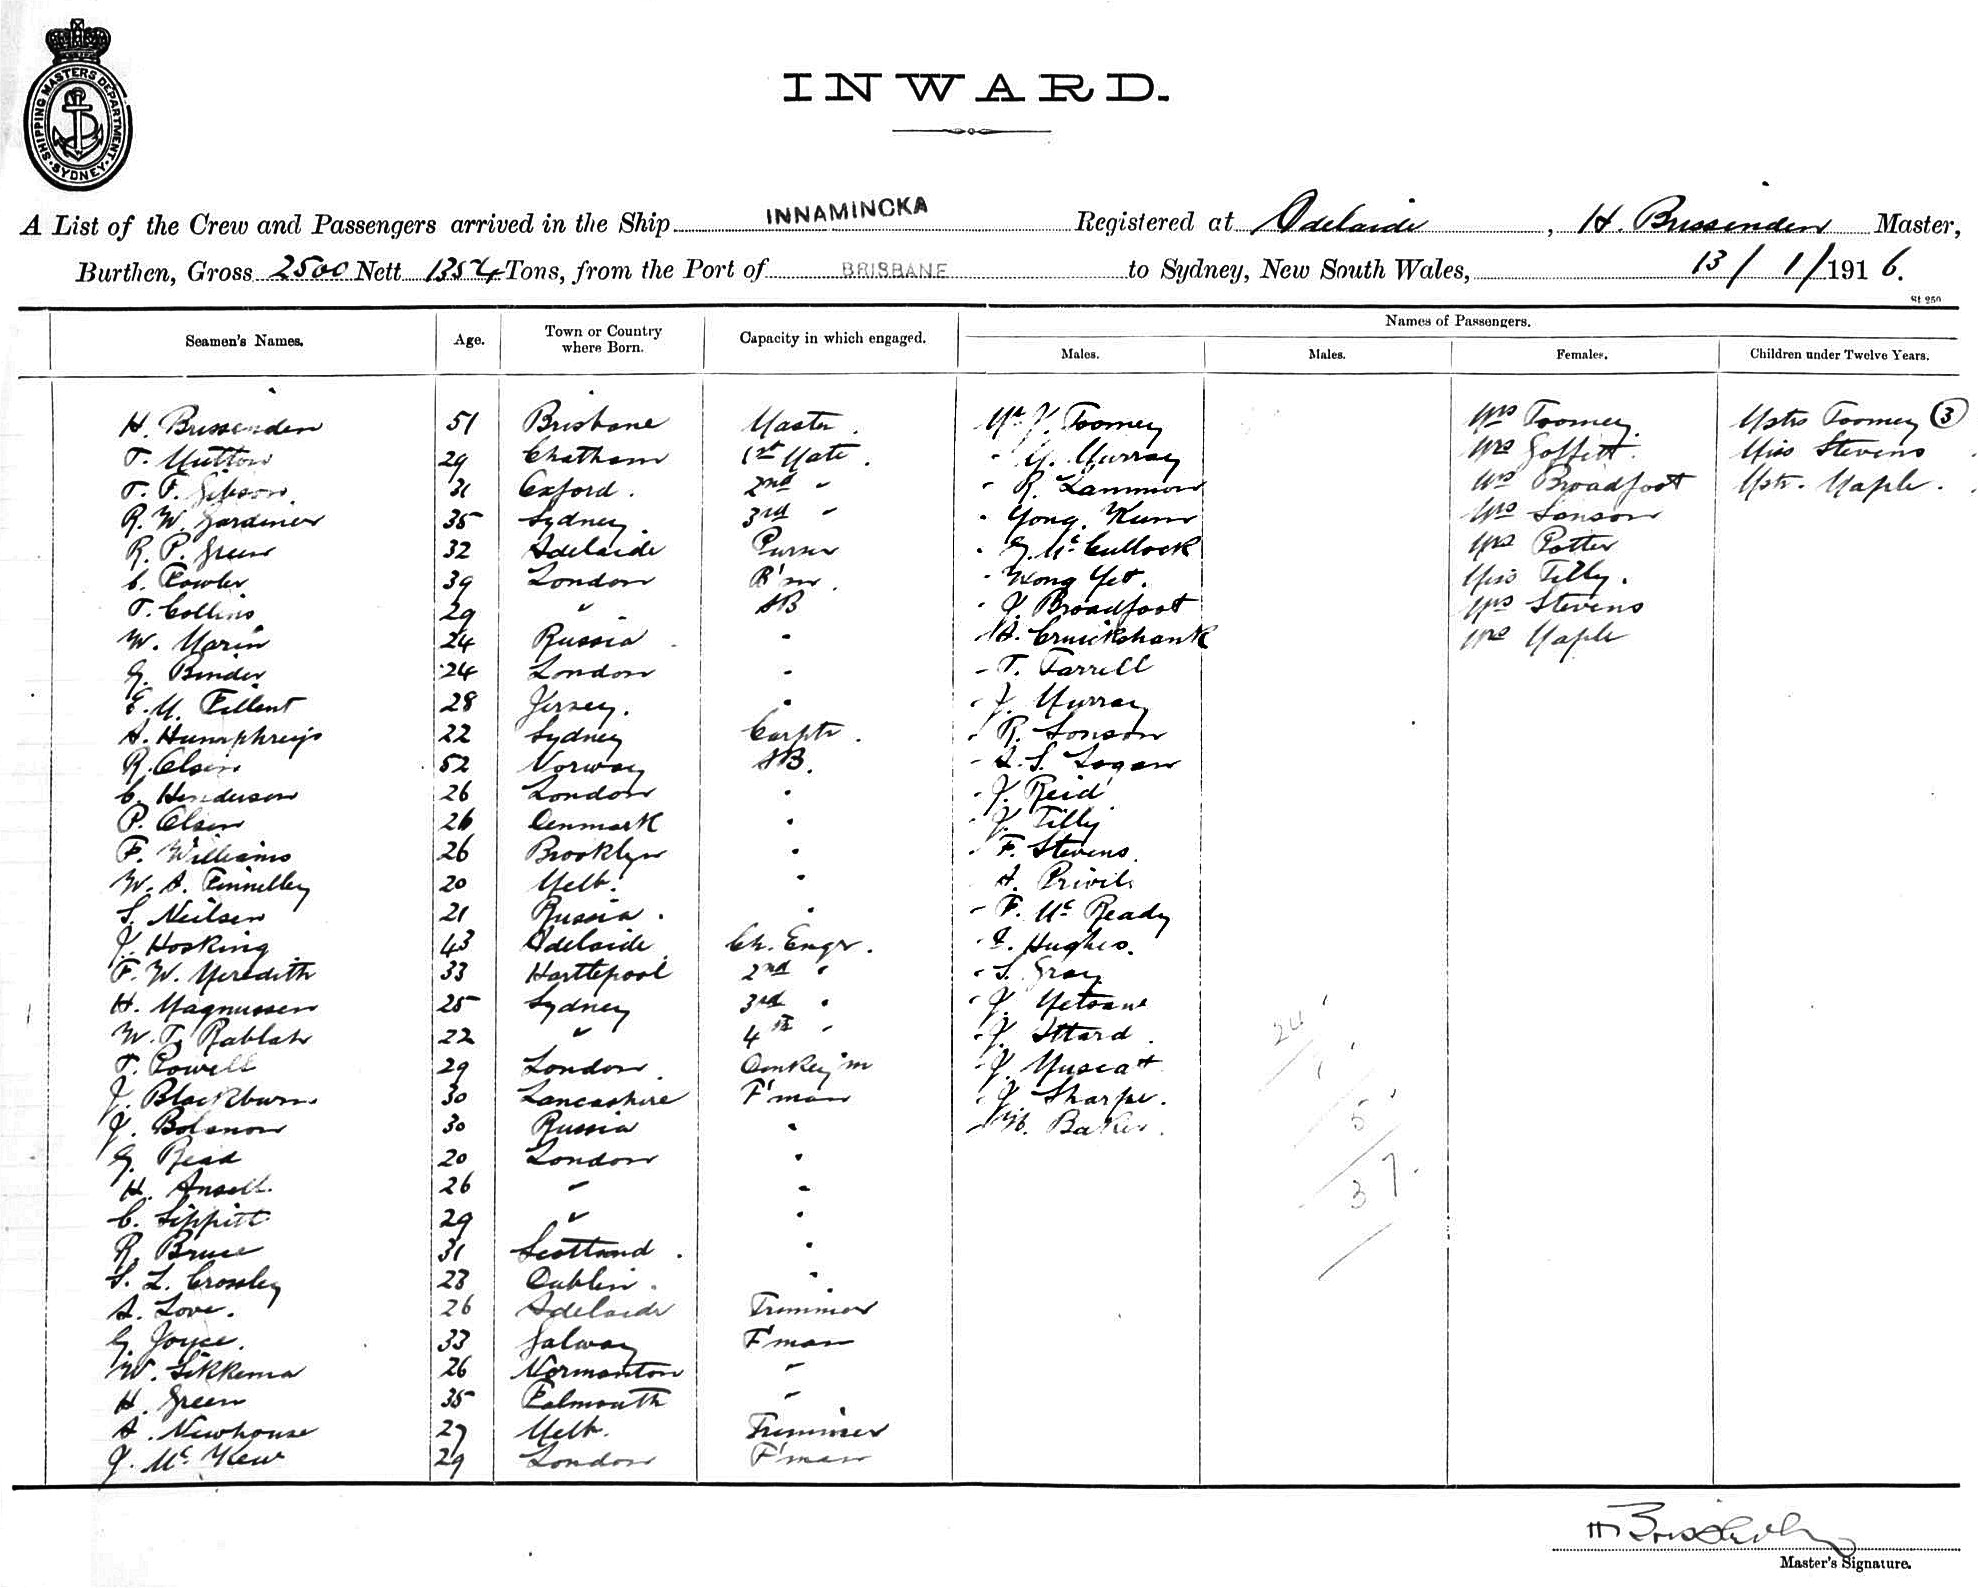 SHIPPING MASTERS DEPARTMENT. SYDNEY
INWARD.
A List of the Crew and Passengers arrived in the Ship INNAMINCKA Registered at Adelaide, H. Brissenden Master,
Burthen, Gross 2500 Nett 1354 Tons, from the Port of BRISBANE to Sydney, New South Wales, 13/1/1916.
St 250
Names of Passengers.
Seamen's Names. Age. Town or Country where Born. Capacity in which engaged. Males. Males. Females. Children under Twelve Years.
H. Brissenden 51 Brisbane Master. Mr J. Toomey Mrs Toomey. Mstrs Toomey (3)
T. Mutton 29 Chatham 1st Mate. - G. Murray Mrs Goffett. Miss Stevens
T. F. Gibson. 31 Oxford. 2nd " - R. Lammon Mrs Broadfoot Mstr. Maple.
R. W. Gardiner 35 Sydney. 3rd " - Yong. Kum Mrs Sonson
R. P. Green 32 Adelaide Purser - G. McCullock Mrs Potter
C. Fowler 39 London B'sn. - Wong Yet. Miss Tilly.
T. Collins 29 " AB - J. Broadfoot Mrs Stevens
W. Marin 24 Russia " - A. Cruickshank Mrs Maple
G. Binder 24 London " - T. Farrell
E. M. Fillent 28 Jersey. " - J. Murray
A. Humphreys 22 Sydney Carptr. - R. Sonson
R. Olsen 52 Norway AB. - A. S. Logan
C. Henderson 26 London " - J. Reid
P. Olsen 26 Denmark " - J. Tilly
F. Williams 26 Brooklyn " - F. Stevens.
W. A. Finnelley 20 Melb. " - A.
S. Neilsen 21 Russia. " - F. McReady
J. Hosking 43 Adelaide Ch. Engr. - Hughes.
F. W. Meredith 33 Hartlepool 2nd " - S. Gray
H. Magnussen 25 Sydney 3rd " - J.
W. T. Rablah 22 " 4th " - J. Attard.
T. Powell 29 London. Donkeym - J. Muscat
J. Blackburn. 30 Lancashire F'man - J. Sharpe.
J. Bolanow 30 Russia " - W. Baker.
G. Read 20 London "
H. Ansell. 26 " "
C. Lippitt 29 " "
R. Bruce 31 Scotland. "
S. L. Crossley 23 Dublin. "
A. Love. 26 Adelaide Trimmer
G. Joyce. 33 Galway F'man
W. Sikkema 26 Normanton "
H. Green 35 Falmouth "
A. Newhouse 27 Melb. Trimmer
J. McKew 29 London F'man
24
5
37.
Master's Signature.